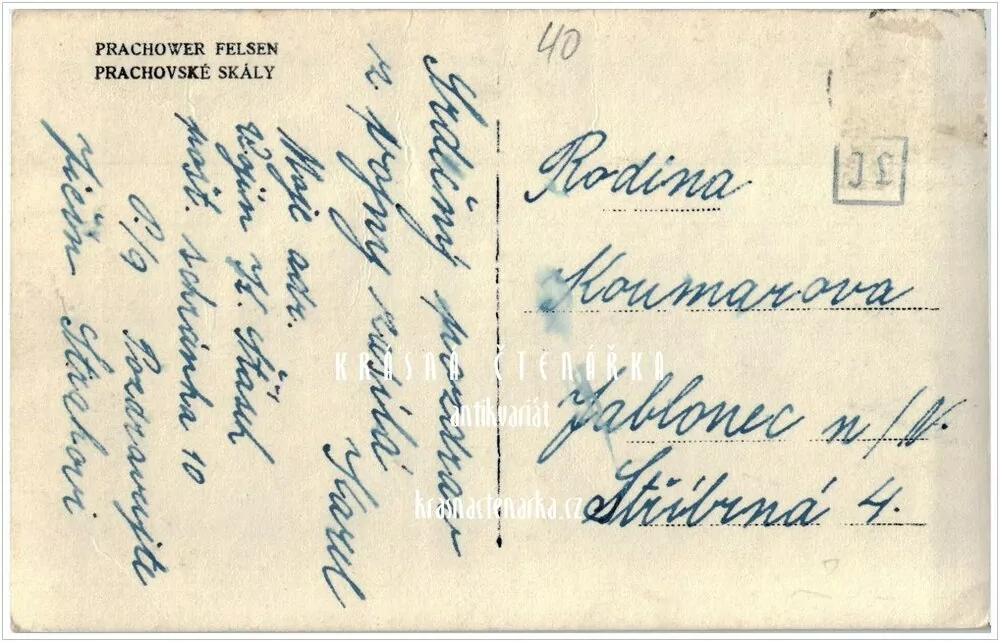 PRACHOWER FELSEN
PRACHOVSKÉ SKÁLY
40
Srdečný pozdrav
z vojny zasílá
Karel
Moje adr.
Vojín K.
pošt. schránka 10
P/9
Jičín
Pozdravujte
Strakovi
Rodina
Koumarova
Jablonec n/N.
Stříbrná 4.
KRÁSNÁ ČTENÁŘKA
antikvariát
krasnactenarka.cz